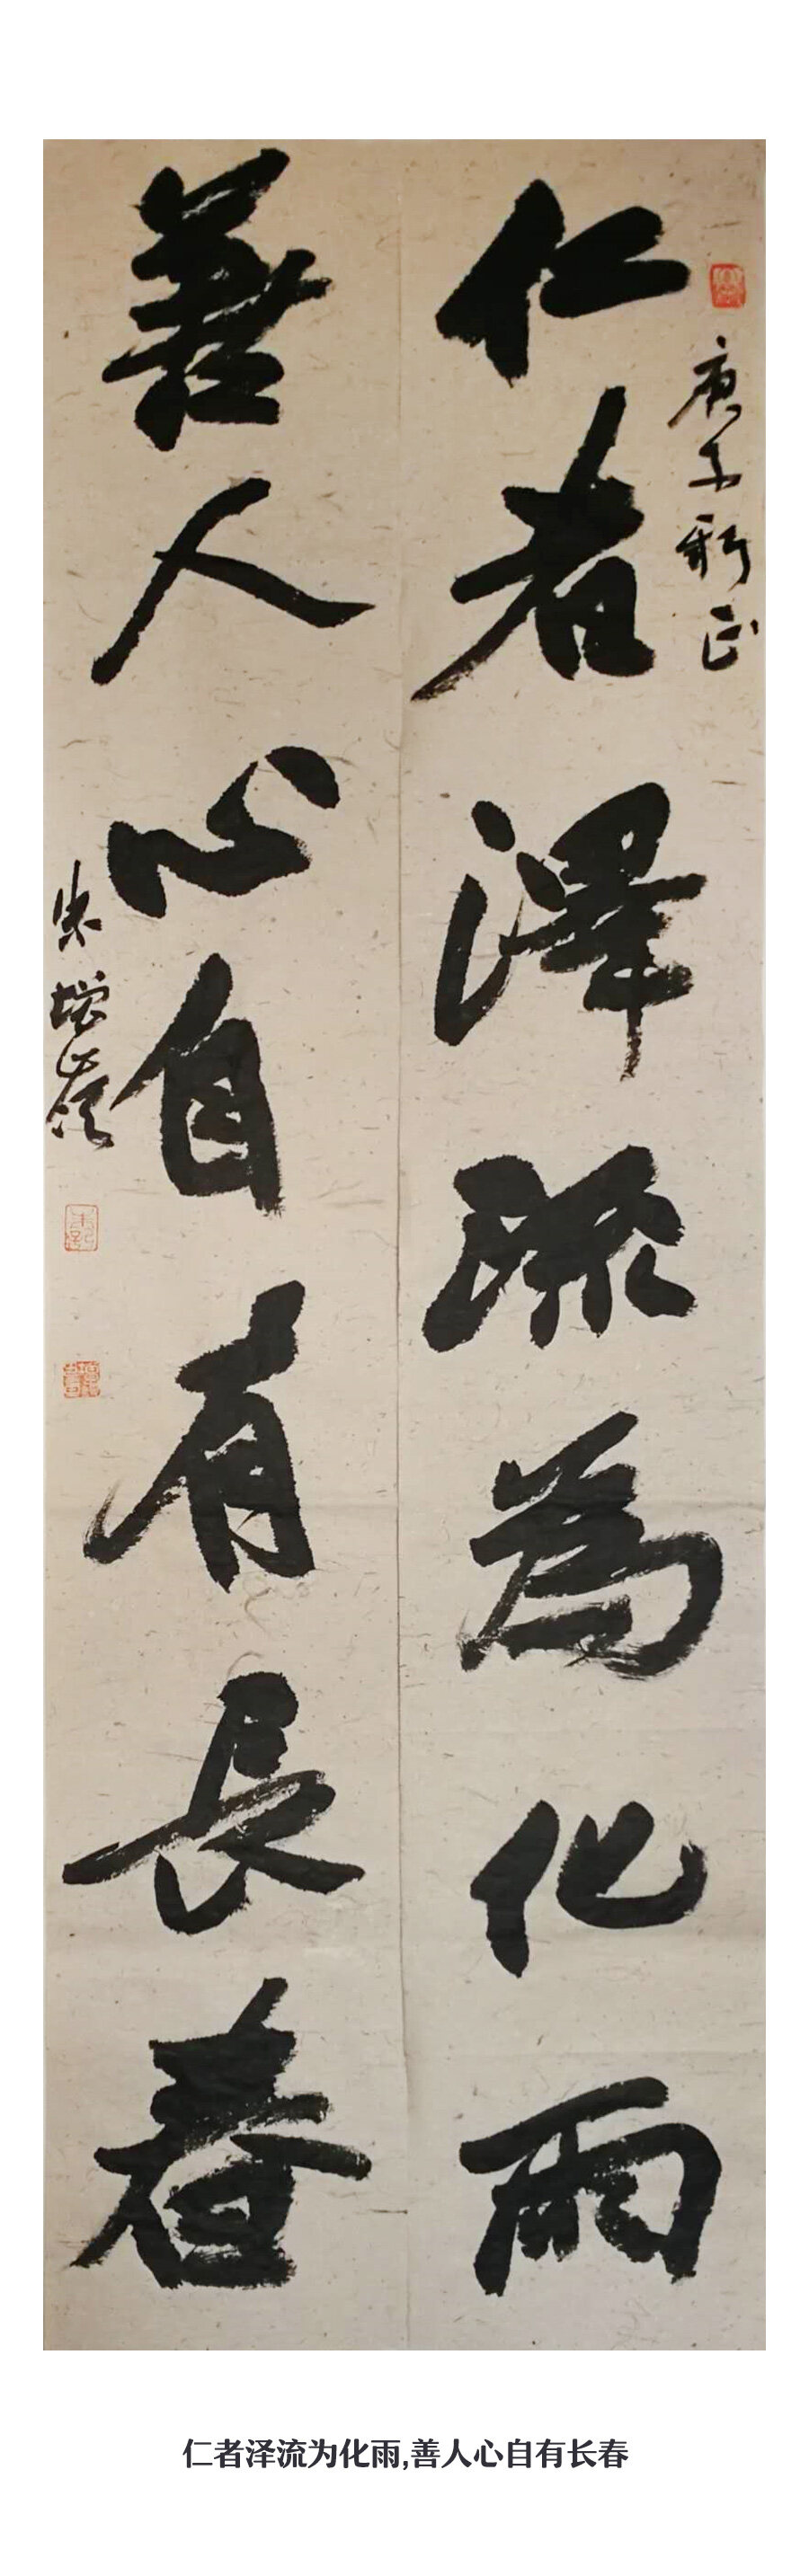 庚子新正
仁者澤流為化雨
善人心自有長春
朱增嶺
仁者泽流为化雨,善人心自有长春